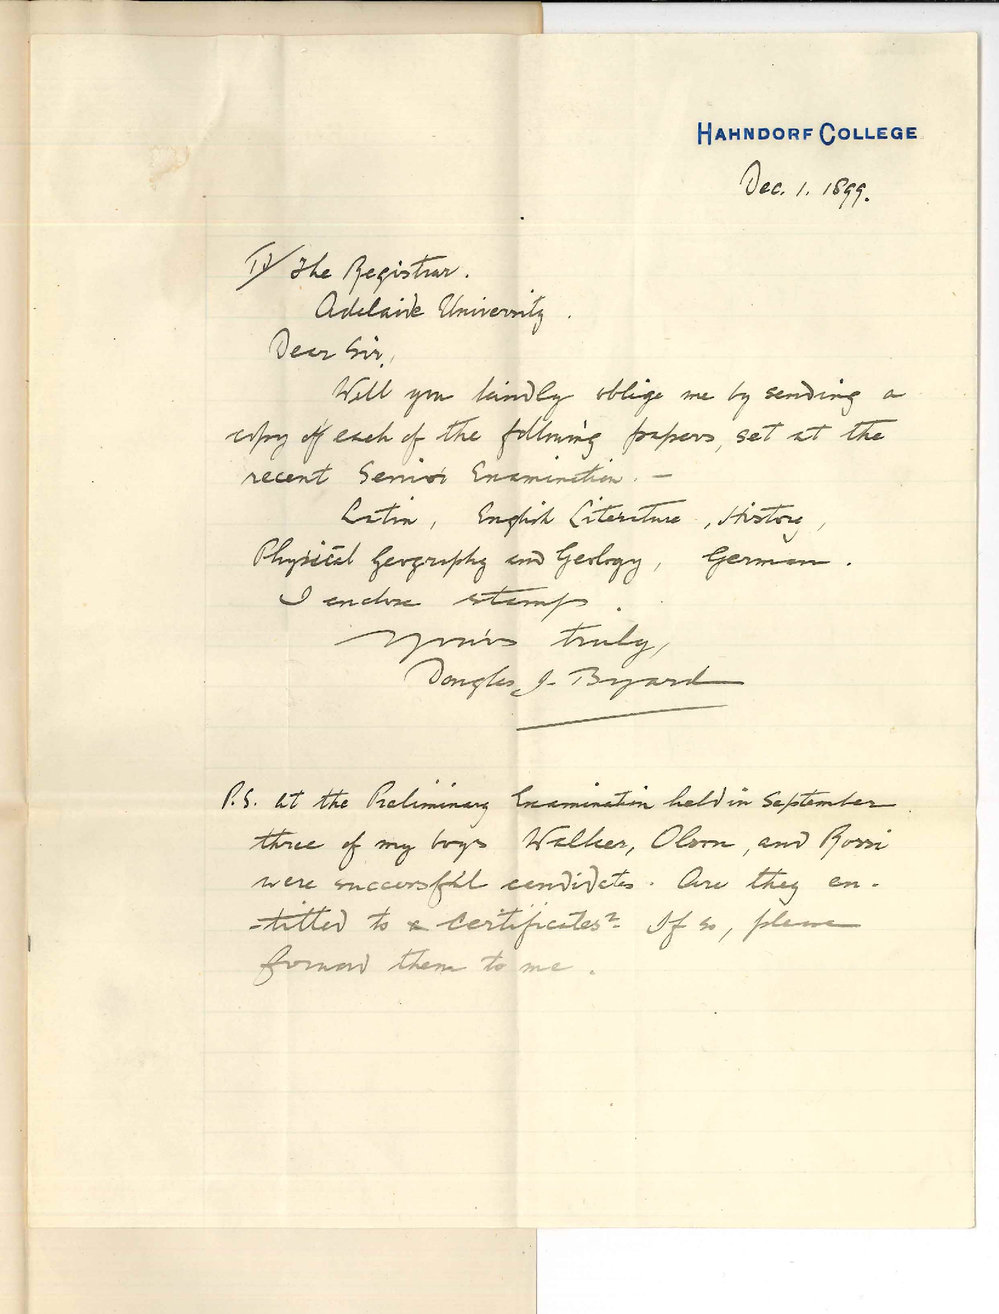 HAHNDORF COLLEGE
Dec. 1. 1899.
To The Registrar.
Adelaide University.
Dear Sir,
Will you kindly oblige me by sending a
copy of each of the following papers, set at the
recent Senior Examination. —
Latin, English Literature, History,
Physical Geography and Geology, German.
I enclose stamps.
Yours truly,
Douglas J. Byard
P.S. At the Preliminary Examination held in September
three of my boys Walker, Olson, and Rossi
were successful candidates. Are they en-
-titled to certificates? If so, please
forward them to me.